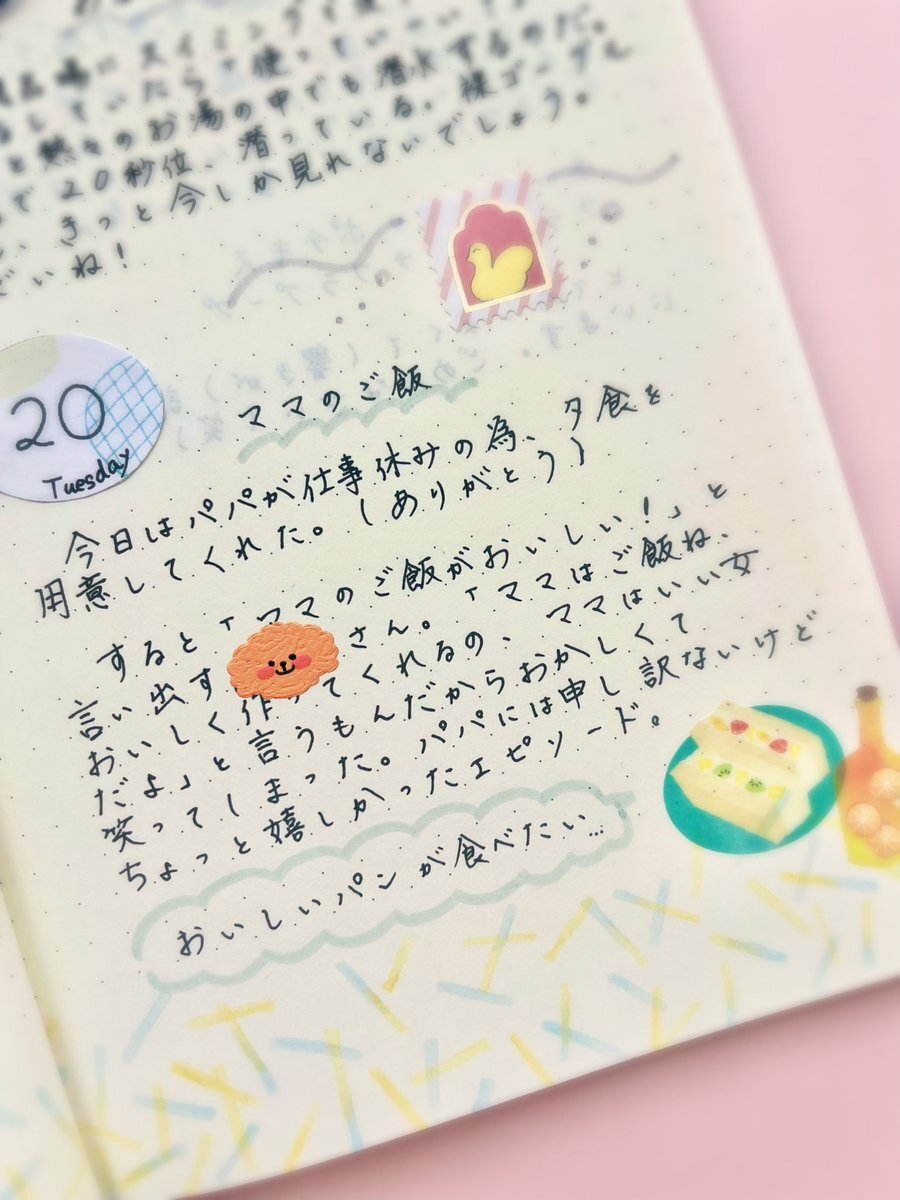 スイミングで使
していたら「使っていい
と熱々のお湯の中でも潜水するのだ。
で20秒位、潜っている。裸ゴーグル
、きっと今しか見れないでしょう。
いね!
20
Tuesday
ママのご飯
今日はパパが仕事休みの為、夕食を
用意してくれた。(ありがとう)
すると「ママのご飯がおいしい!」と
言い出す さん。「ママはご飯ね、
おいしく作ってくれるの、ママはいい女
だよ」と言うもんだからおかしくて
笑ってしまった。パパには申し訳ないけど
ちょっと嬉しかったエピソード。
おいしいパンが食べたい…